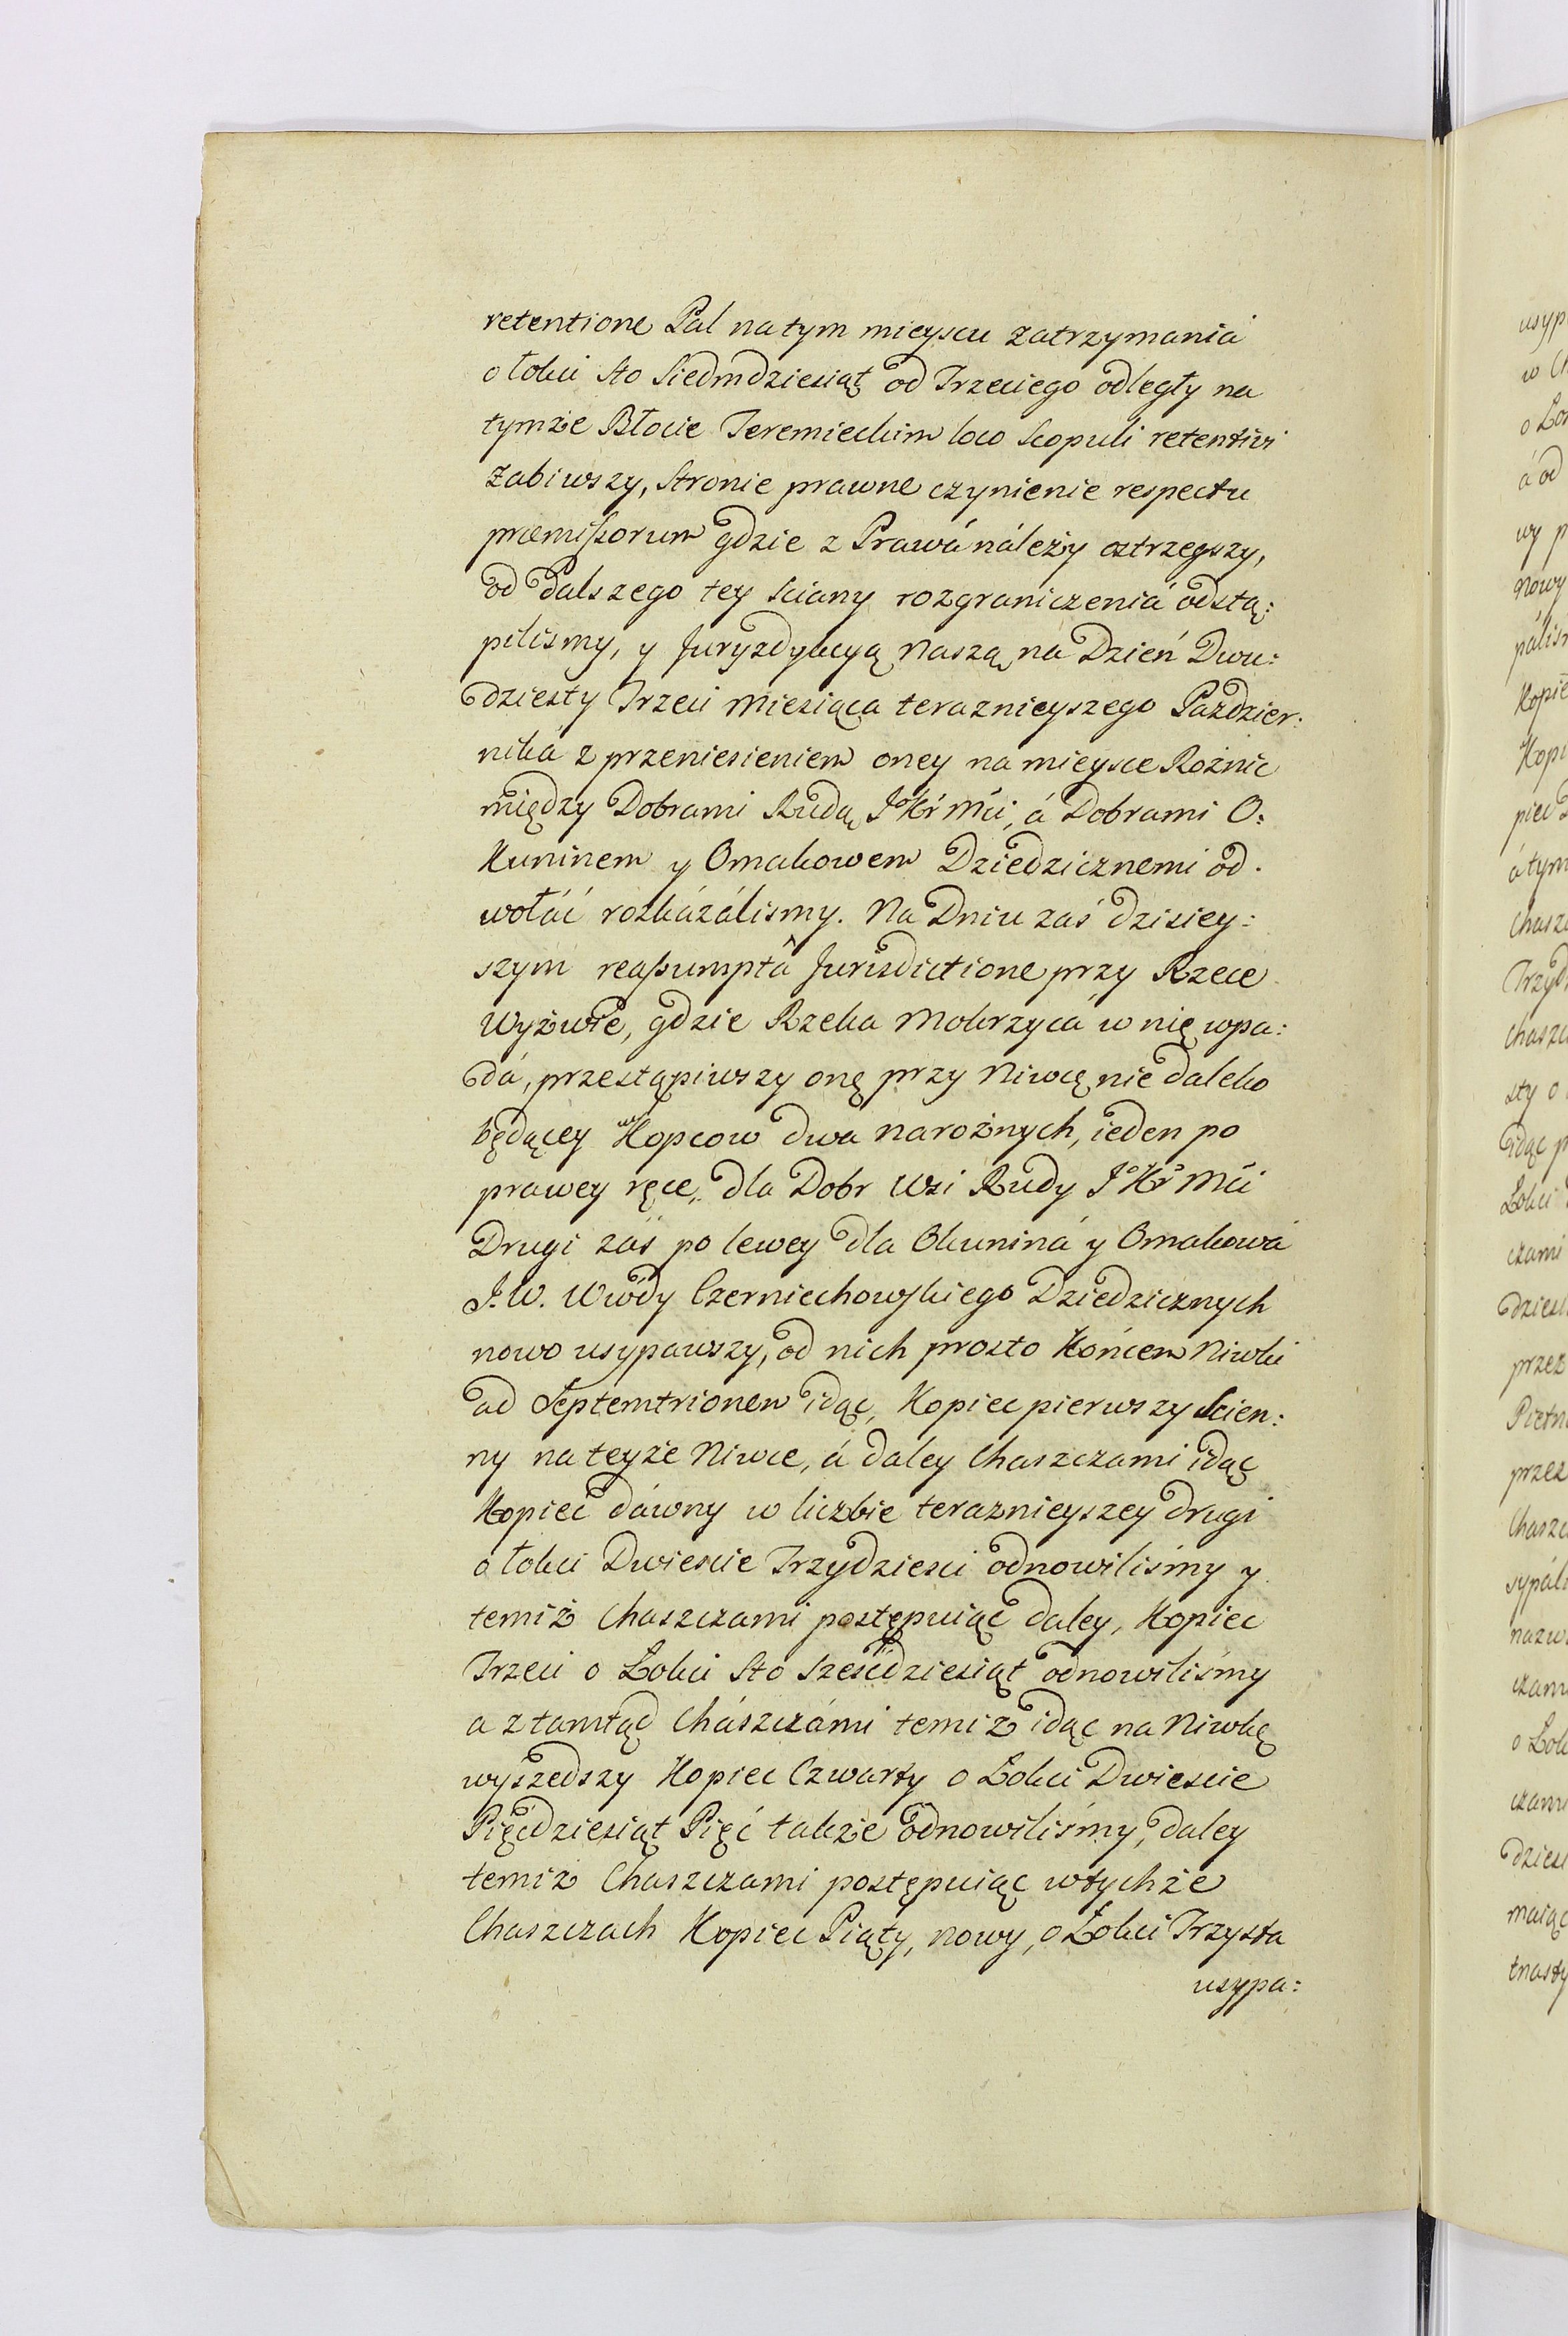 retentione Pal na tym mieyscu zatrzymania
o łokci sto Siedmdziesiąt od Trzeciego odległy na
tymże Błocie Jeremieckim loco Scopuli retentivi
zabiwszy, Stronie prawne czynienie respectu
præmissorum gdzie z Prawá nálezy ostrzegszy,
od dalszego tey sciany rozgraniczenia odstą:
pilismy, y Juryzdykcyą Naszą na Dzień Dwu:
dziesty Trzeci Miesiąca teraznieyszego Paździer:
nika z przeniesieniem oney na mieysce Roznic
między Dobrami Rudą J° Kr Mci, á Dobrami O:
kuninem y Omakowem Dziedzicznemi od:
wołáć rozkázálismy. Na Dniu zaś dzisiey:
szym reassumptâ Jurisdictione przy Rzece
Wyżwie, gdzie Rzeka Mokrzyca w nię wpa:
dá, przestąpiwszy onę przy Niwcę nie daleko
będącey Kopcow dwa narożnych, ieden po
prawey ręce, dla Dobr Wsi Rudy J° Kr Mci
Drugi zaś po lewey dla Okunina y Omakowa
J. W. Wwódy Czerniechowskiego Dziedzicznych
nowo usypawszy, od nich prosto Końcem Niwki
ad Septemtrionem idąc, Kopiec pierwszy scien:
ny na teyże Niwce, á daley Chaszczami idąc
Kopiec dáwny w liczbie teraznieyszey drugi
o łokci Dwiescie Trzydziesci odnowiliśmy y
temiż Chaszczami postępuiąc daley, Kopiec
Trzeci o Łokci Sto Sześćdziesiąt odnowiliśmy
a ztamtąd Chászczámi temiż idąc na Niwkę
wyszedszy Kopiec Czwarty o Łokci Dwiescie
Pięćdziesiąt Pięć także odnowiliśmy, daley
temiż Chaszczami postępuiąc w tychże
Chaszczach Kopiec Piąty, nowy, o Łokci Trzysta
usypa: